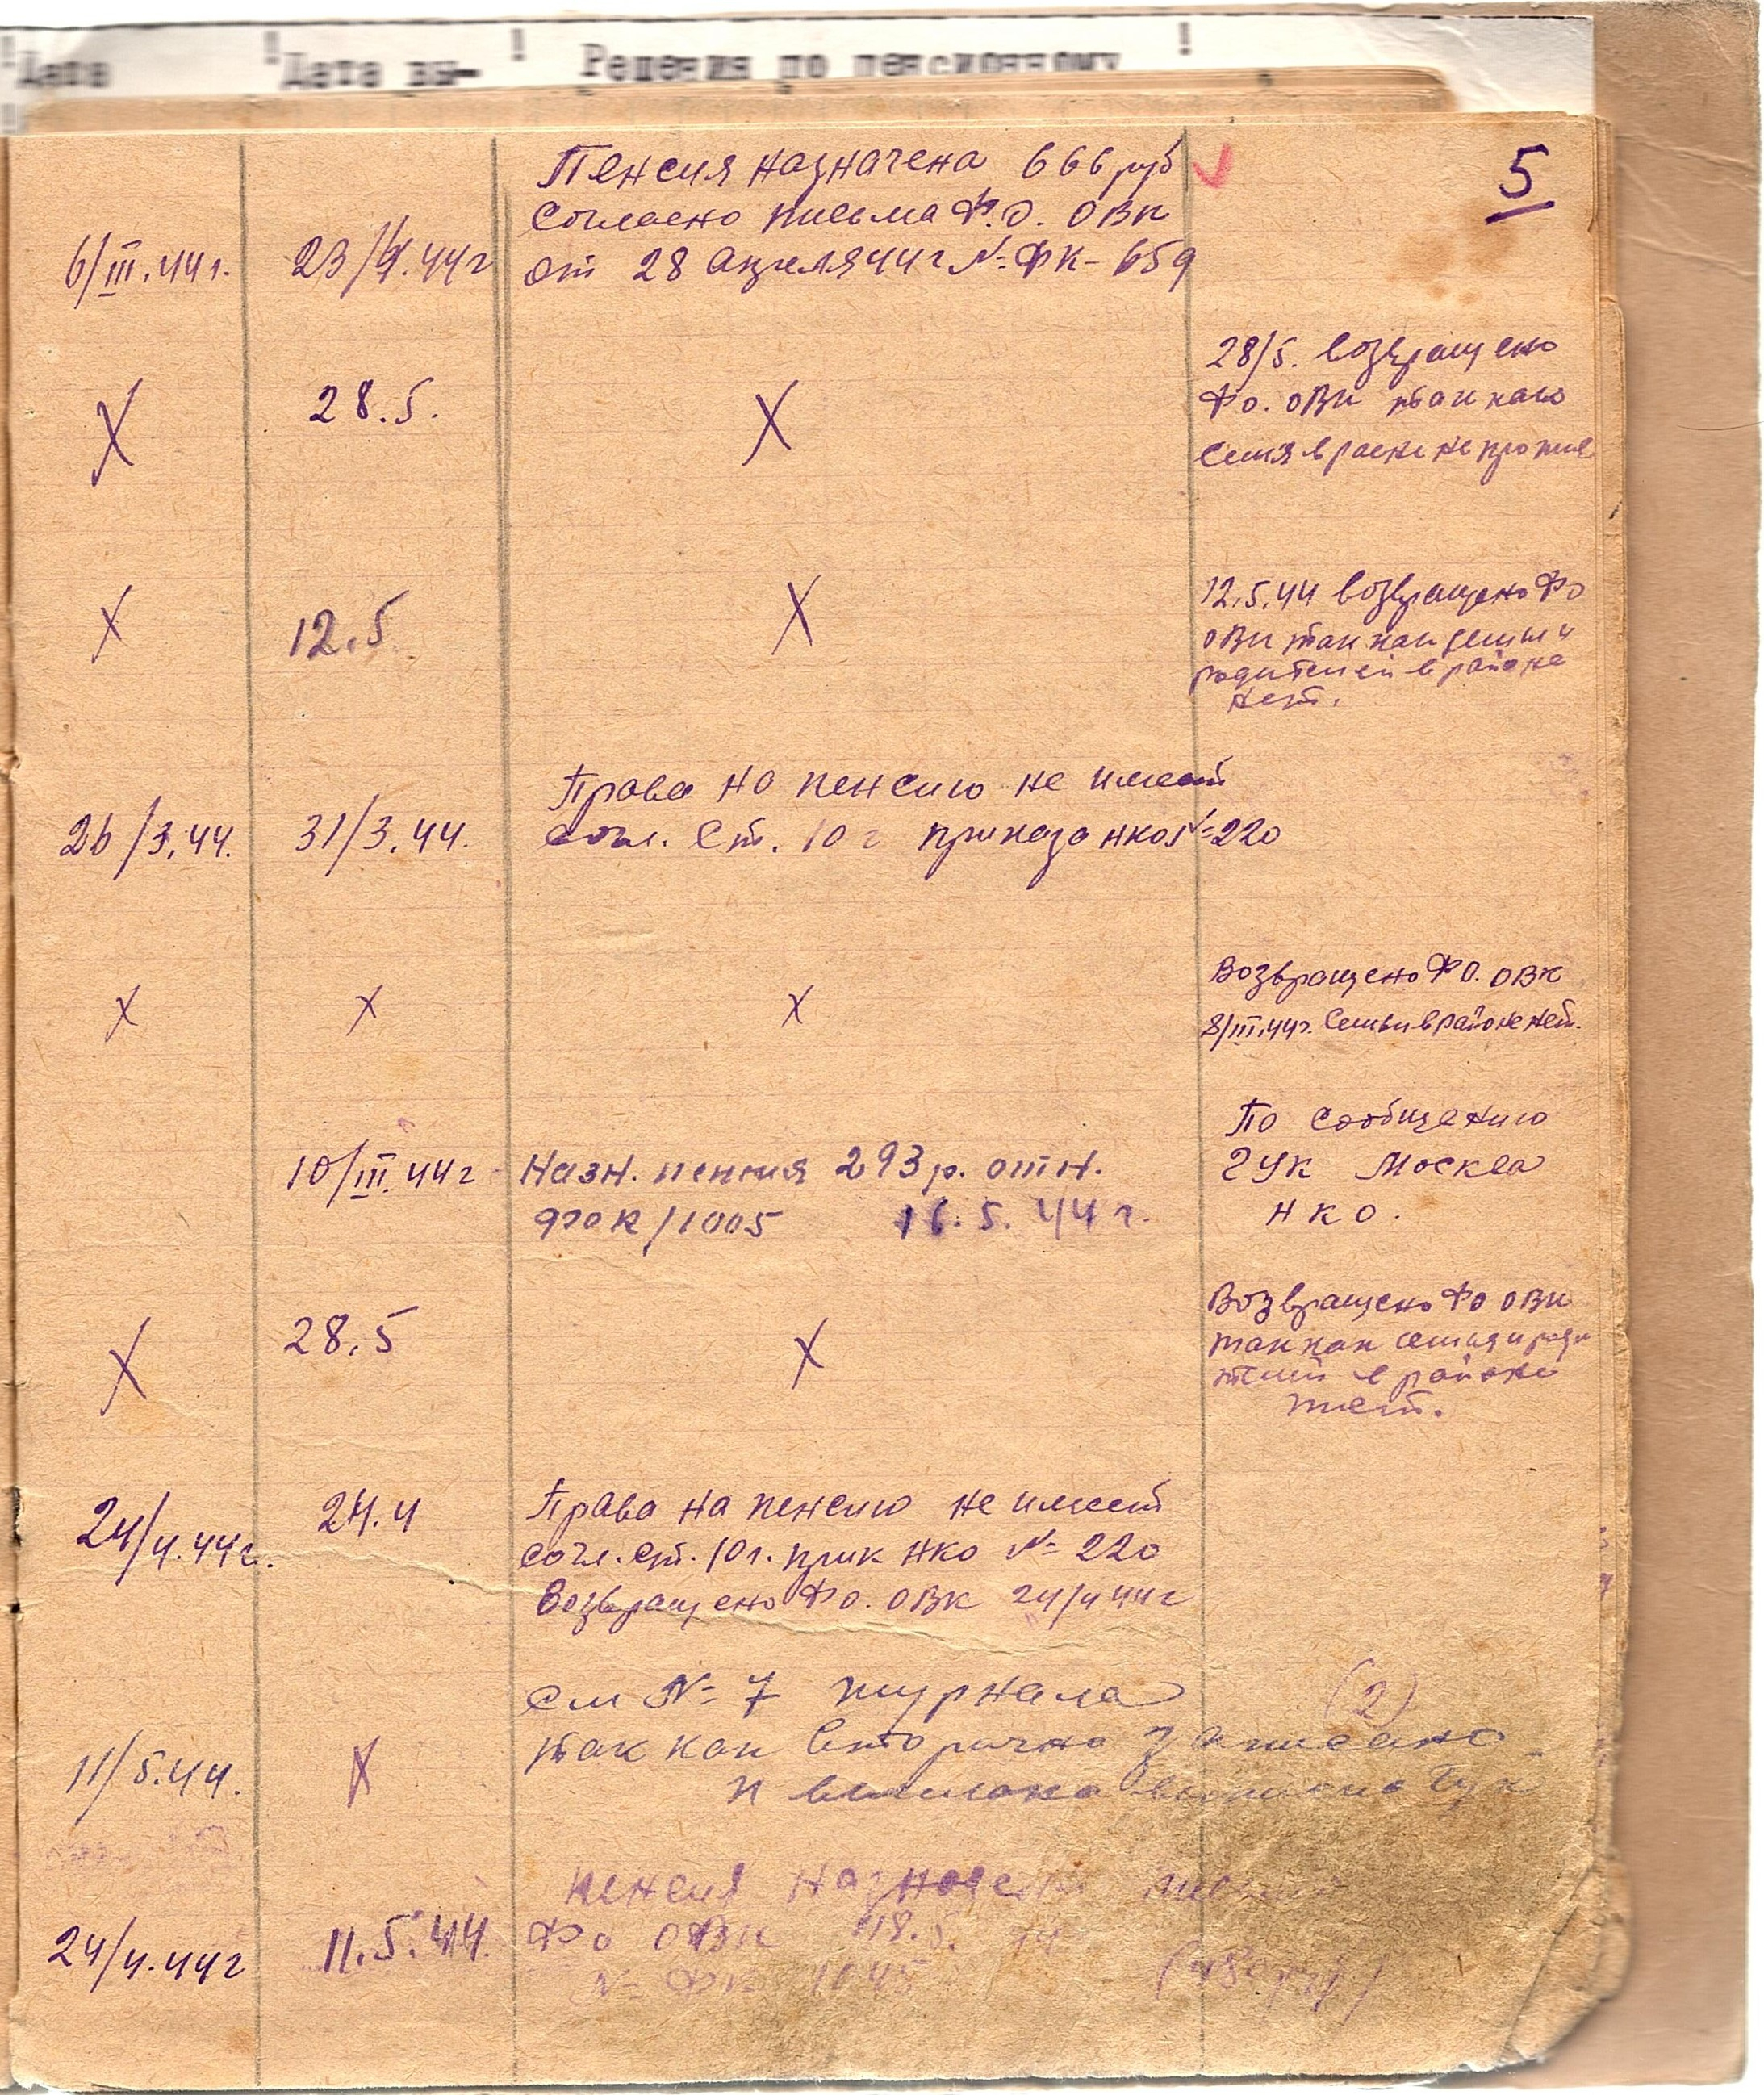 Дата
Дата вы-
Решения по пенсионному
5
Пенсия назначена 666 руб
Согласно письма Ф.О. ОВК
6/III.44г. 23/4.44г от 28 апреля 44г № ФК-659
28/5. возвращено
Х 28.5. Х Фо. ОВК так как
семя в раене не прожив
12.5.44 возвращено Фо
Х 12.5 Х ОВК так как семьи и
родителей в районе
нет.
Права на пенсию не имеет
26/3.44. 31/3.44. согл. Ст. 10 г приказа НКО № 220
Возвращено ФО. ОВК
Х Х Х 8/III.44г. Семьи в районе нет.
По сообщению
10/III.44г Назн. пенсия 293 р. отн. ГУК Москва
ФОК/1005 16.5.44г. НКО.
Возвращено Фо ОВК
Х 28.5 Х так как семья и роди
телей в районе
нет.
24/4.44г. 24.4 Права на пенсию не имеет
согл. ст. 10 г. прик НКО № 220
Возвращено Фо. ОВК 24/4 44г
См № 7 журнала (2)
11/5.44. Х так как вторично записано
и
пенсия
24/4.44г 11.5.44. Фо ОВК 18.5. 44
№ ФК 1045